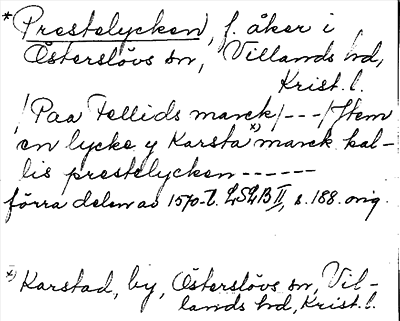 *Prestelycken, f. åker i
Österslövs sn, Villands hd,
Krist. l.
/Paa Fellids marck/---/Jtem
en lycke y Karsta x) marck kal-
lis prestelycken ------
förra delen av 1570-t. LSLB II, s. 188. orig.
x) Karstad, by, Österslövs sn, Vil-
lands hd, Krist. l.